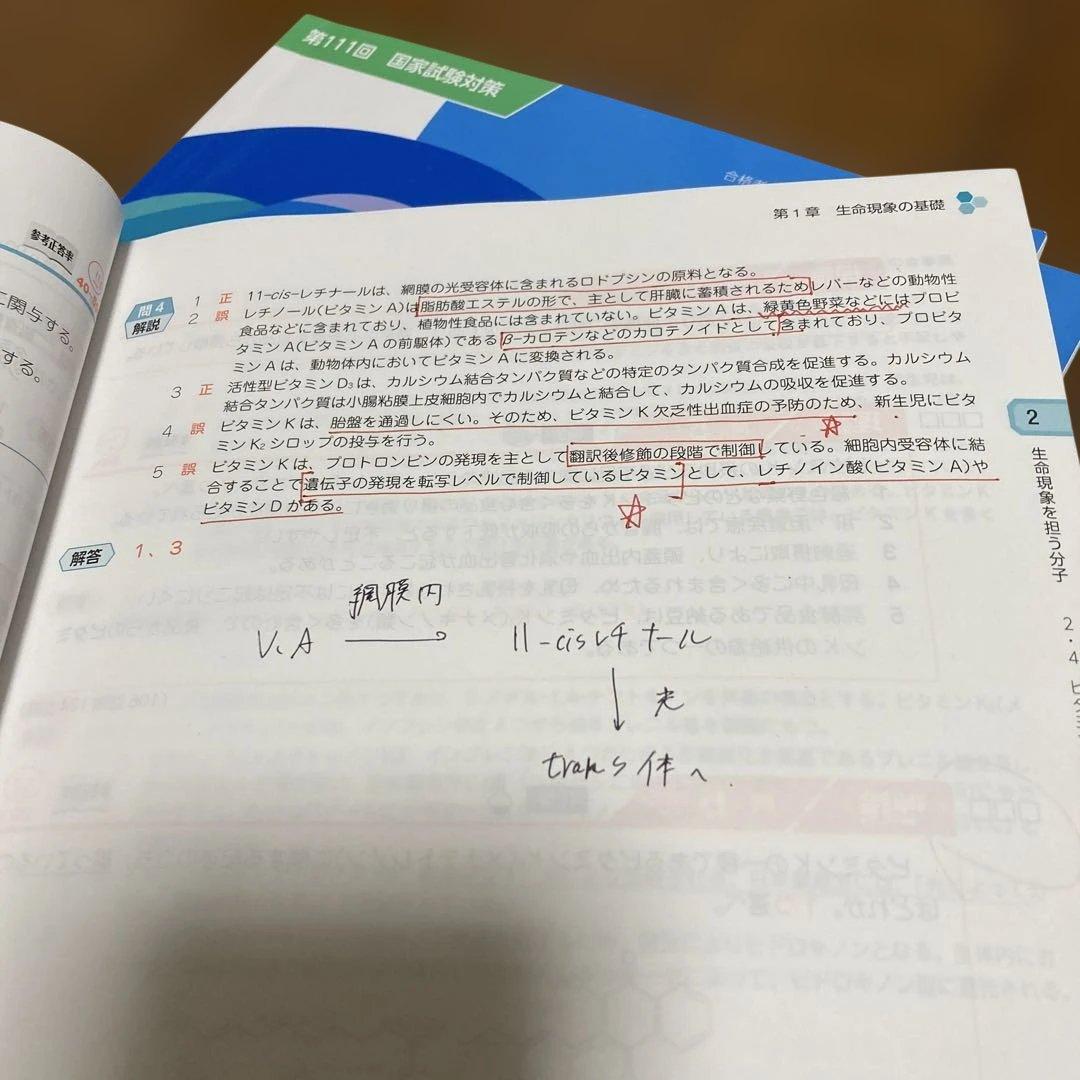 第111回 国家試験対策
合格
第1章 生命現象の基礎
参考正答率
40.
に関与する。
する。
問4
解説
1 正 11-cis-レチナールは、網膜の光受容体に含まれるロドプシンの原料となる。
2 誤 レチノール(ビタミンA)は脂肪酸エステルの形で、主として肝臓に蓄積されるためレバーなどの動物性
食品などに含まれており、植物性食品には含まれていない。ビタミンAは、緑黄色野菜などにはプロビ
タミンA(ビタミンAの前駆体)であるβ-カロテンなどのカロテノイドとして含まれており、プロビタ
ミンAは、動物体内においてビタミンAに変換される。
3 正 活性型ビタミンD₃は、カルシウム結合タンパク質などの特定のタンパク質合成を促進する。カルシウム
結合タンパク質は小腸粘膜上皮細胞内でカルシウムと結合して、カルシウムの吸収を促進する。
4 誤 ビタミンKは、胎盤を通過しにくい。そのため、ビタミンK欠乏性出血症の予防のため、新生児にビタ
ミンK₂シロップの投与を行う。
5 誤 ビタミンKは、プロトロンビンの発現を主として翻訳後修飾の段階で制御している。細胞内受容体に結
合することで遺伝子の発現を転写レベルで制御しているビタミンとして、レチノイン酸(ビタミンA)や
ビタミンDがある。
解答 1、3
網膜内
V.A → 11-cisレチナール
↓ 光
trans体へ.
2
生命現象を担う分子
2・4 ビタミン